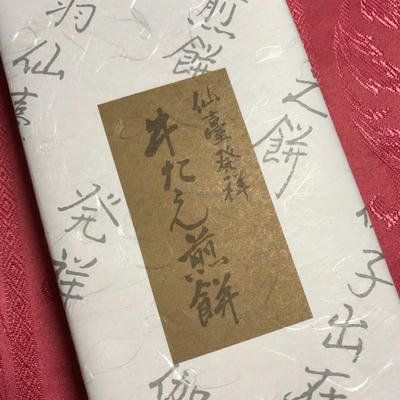 之餅
子出在
煎餅
仙臺発祥
牛たん煎餅
仙臺
発祥
伽